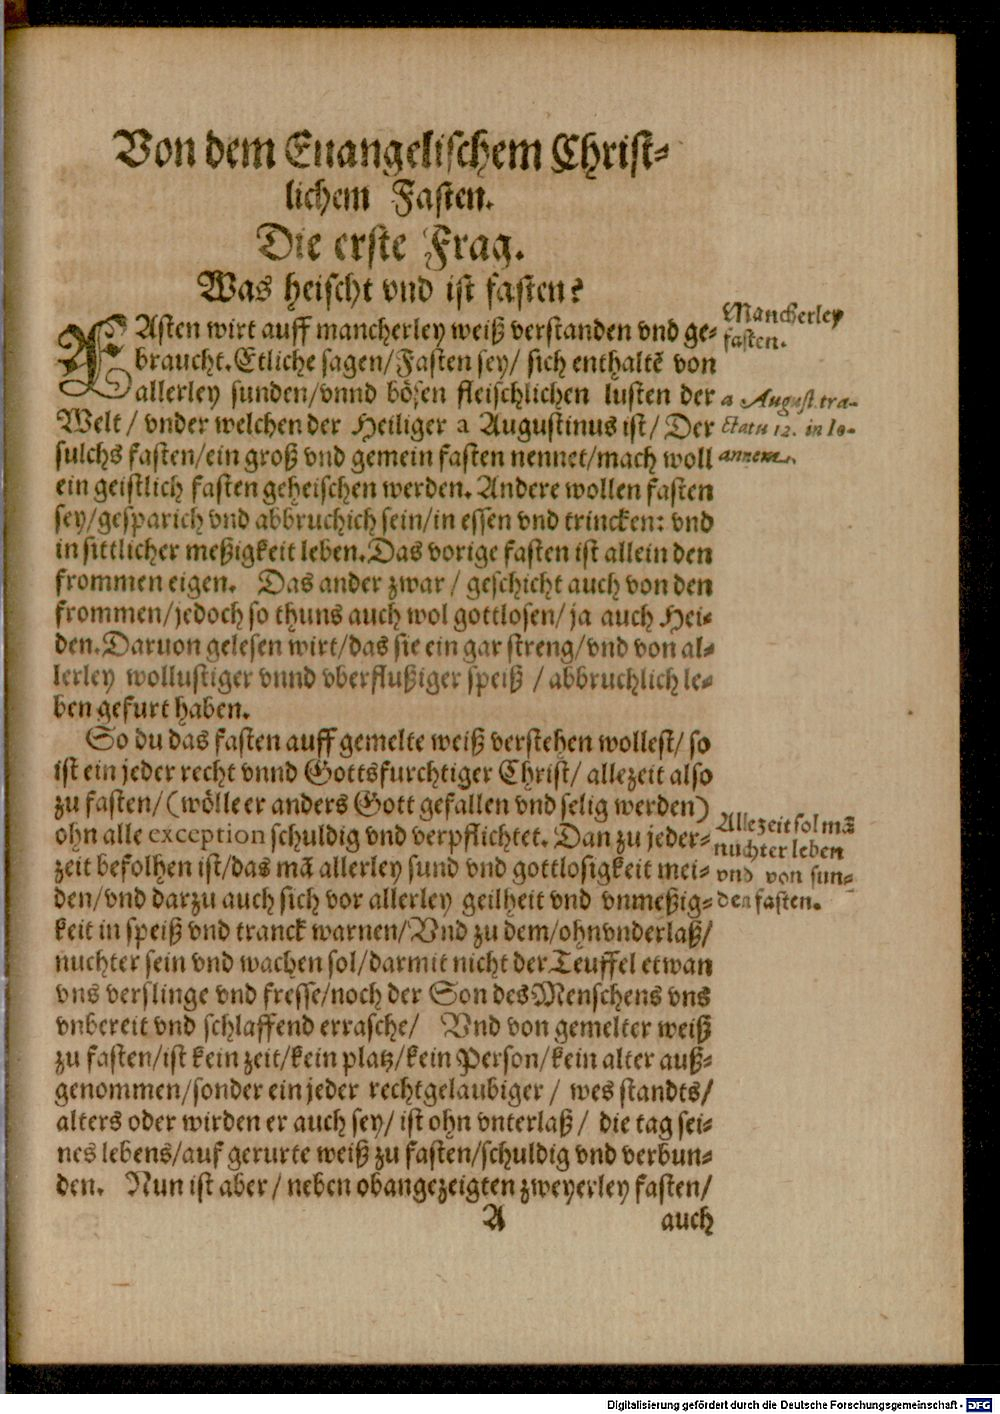 Von dem Euangelischem Christ-
lichem Fasten.
Die erste Frag.
Was heischt vnd ist fasten?
FAsten wirt auff mancherley weiß verstanden vnd ge-
braucht. Etliche sagen/ Fasten sey/ sich enthaltē von
allerley sunden/ vnnd bösen fleischlichen lusten der
Welt/ vnder welchen der Heiliger a Augustinus ist/ Der
sulchs fasten/ ein groß vnd gemein fasten nennet/ mach woll
ein geistlich fasten geheischen werden. Andere wollen fasten
sey/ gesparich vnd abbruchich sein/ in essen vnd trincken: vnd
in sittlicher meßigkeit leben. Das vorige fasten ist allein den
frommen eigen. Das ander zwar/ geschicht auch von den
frommen/ jedoch so thuns auch wol gottlosen/ ja auch Hei-
den. Daruon gelesen wirt/ das sie ein gar streng/ vnd von al-
lerley wollustiger vnnd vberflußiger speiß/ abbruchlich le-
ben gefurt haben.
So du das fasten auff gemelte weiß verstehen wollest/ so
ist ein jeder recht vnnd Gottsfurchtiger Christ/ allezeit also
zu fasten/ (wölle er anders Gott gefallen vnd selig werden)
ohn alle exception schuldig vnd verpflichtet. Dan zu jeder-
zeit befolhen ist/ das mā allerley sund vnd gottlosigkeit mei-
den/ vnd darzu auch sich vor allerley geilheit vnd vnmeßig-
keit in speiß vnd tranck warnen/ Vnd zu dem/ ohnvnderlaß/
nuchter sein vnd wachen sol/ darmit nicht der Teuffel etwan
vns verslinge vnd fresse/ noch der Son des Menschens vns
vnbereit vnd schlaffend errasche/ Vnd von gemelter weiß
zu fasten/ ist kein zeit/ kein platz/ kein Person/ kein alter auß-
genommen/ sonder ein jeder rechtgelaubiger/ wes standts/
alters oder wirden er auch sey/ ist ohn vnterlaß/ die tag sei-
nes lebens/ auf gerurte weiß zu fasten/ schuldig vnd verbun-
den. Nun ist aber/ neben obangezeigten zweyerley fasten/
A auch
Mancherley
fasten.
a August. tra-
ctatu 12. in Io-
annem.
Allezeit sol mā
nuchter leben
vnd von sun-
den fasten.
Digitalisierung gefördert durch die Deutsche Forschungsgemeinschaft - DFG